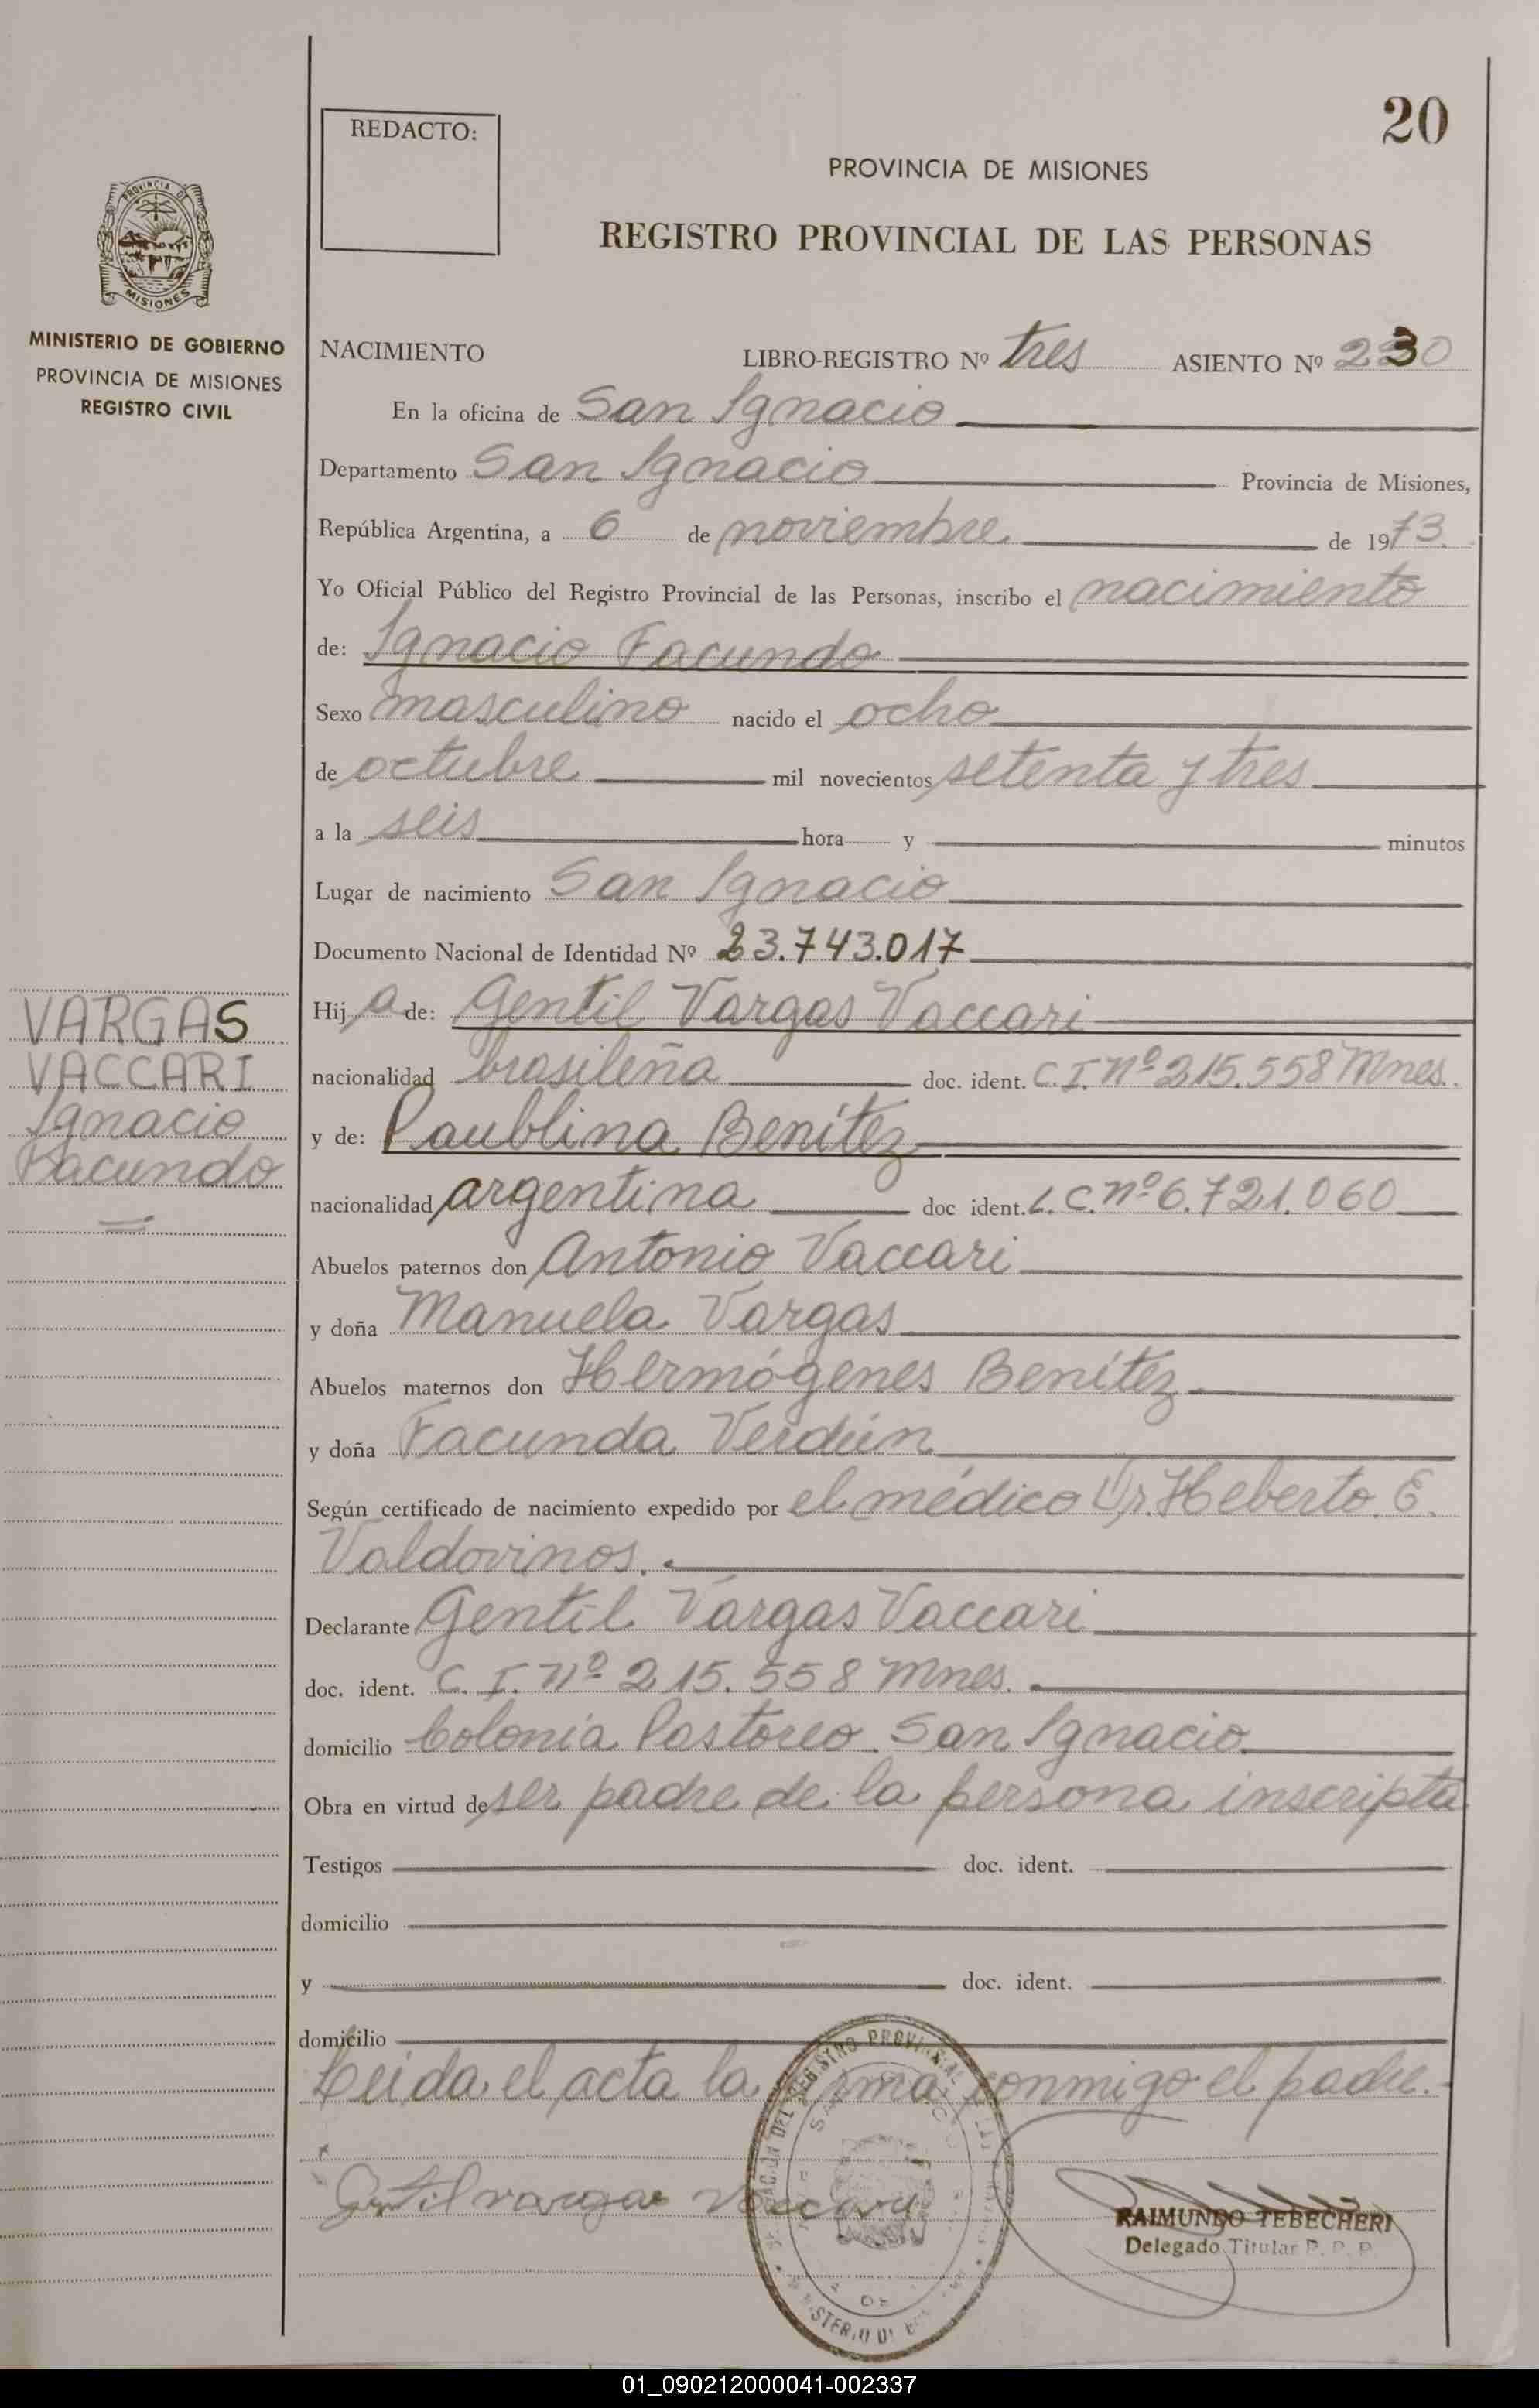 20
REDACTO:
PROVINCIA DE MISIONES
REGISTRO PROVINCIAL DE LAS PERSONAS
PROVINCIA DE
MISIONES
MINISTERIO DE GOBIERNO
PROVINCIA DE MISIONES
REGISTRO CIVIL
NACIMIENTO LIBRO-REGISTRO Nº tres ASIENTO Nº 230
En la oficina de San Ignacio
Departamento San Ignacio Provincia de Misiones,
República Argentina, a 6 de noviembre de 1973.
Yo Oficial Público del Registro Provincial de las Personas, inscribo el nacimiento
de: Ignacio Facundo
Sexo masculino nacido el ocho
de octubre mil novecientos setenta y tres
a la seis hora y minutos
Lugar de nacimiento San Ignacio
Documento Nacional de Identidad Nº 23.743.017
Hij a de: Gentil Vargas Vaccari
nacionalidad brasileña doc. ident. C.I. Nº 215.558 Mnes.
y de: Paublina Benítez
nacionalidad argentina doc ident. L.C. nº 6.721.060
Abuelos paternos don Antonio Vaccari
y doña Manuela Vargas
Abuelos maternos don Hermógenes Benítez
y doña Facunda Verdún
Según certificado de nacimiento expedido por el médico Dr. Heberto E.
Valdovinos.
Declarante Gentil Vargas Vaccari
doc. ident. C. I. Nº 215.558 Mnes.
domicilio Colonia Pastoreo San Ignacio
Obra en virtud de ser padre de la persona inscripta
Testigos doc. ident.
domicilio
y doc. ident.
domicilio
Leída el acta la firma conmigo el padre.
Gentil vargas vaccari
RAIMUNDO TEBECHERI
Delegado Titular R. P. P.
VARGAS
VACCARI
Ignacio
Facundo
01_090212000041-002337